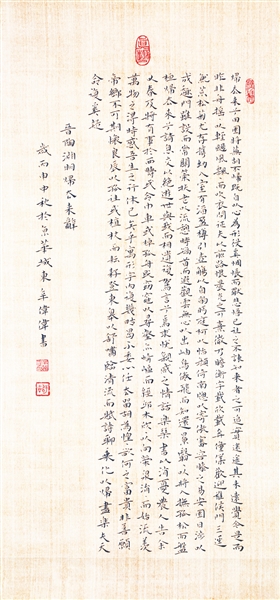 歸去來兮田園將蕪胡不歸既自以心為形役奚惆悵而獨悲悟已往之不諫知來者之可追實迷途其未遠覺今是而
昨非舟搖搖以輕颺風飄飄而吹衣問征夫以前路恨晨光之熹微乃瞻衡宇載欣載奔僮僕歡迎稚子候門三逕
就荒松菊尤存攜幼入室有酒盈樽引壺觴以自酌眄庭柯以怡顏倚南窗以寄傲審容膝之易安園日涉以
成趣門雖設而常關策扶老以流憩時矯首而遐觀雲無心以出岫鳥倦飛而知還景翳翳以將入撫孤松而盤
桓歸去來兮請息交以絕遊世與我而相遺復駕言兮焉求悅親戚之情話樂琴書以消憂農人告余
以春及將有事於西疇或命巾車或棹孤舟既窈窕以尋壑亦崎嶇而經丘木欣欣以向榮泉涓涓而始流羨
萬物之得時感吾生之行休已矣乎寓形宇內復幾時曷不委心任去留胡為惶惶欲何之富貴非吾願
帝鄉不可期懷良辰以孤往或植杖而耘耔登東皋以舒嘯臨清流而賦詩聊乘化以歸盡樂夫天
命復奚疑
晉陶淵明歸去來辭
歲丙申中秋於京華城東牟偉偉書